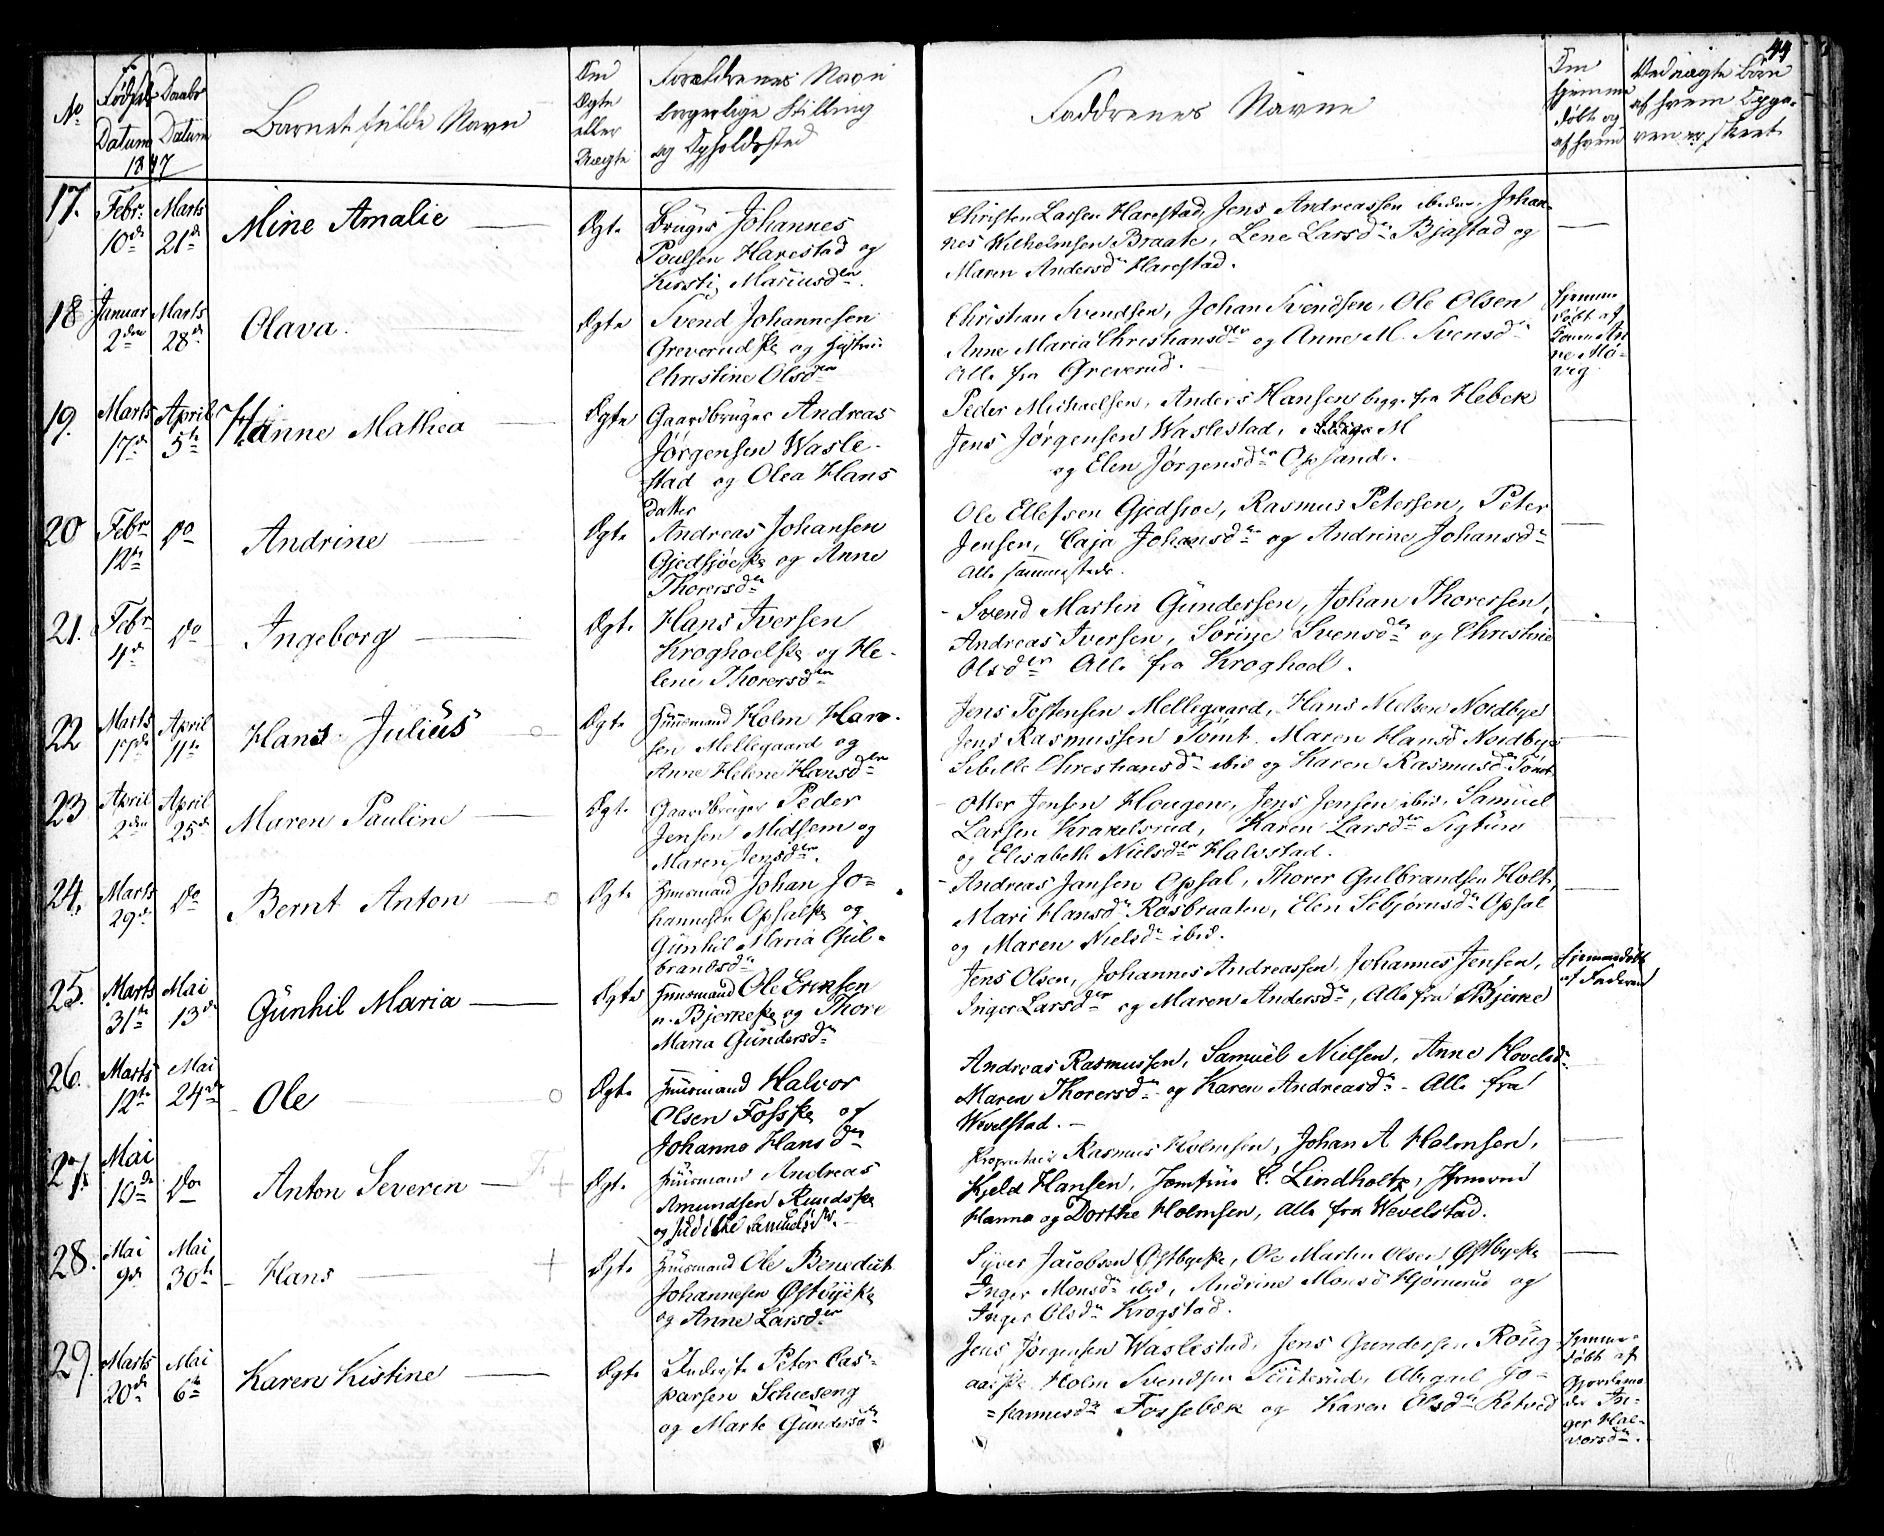 44
No
Fødsels Datum
Daabs Datum
1847
Barnets fulde Navn
Om Ægte eller Uægte
Forældrenes Navn
borgerlige Stilling
og Opholdssted
Faddrenes Navne
Om hjemme
døbt og
af hvem
Ved uægte Børn
af hvem Opga-
ven er skeet
17. Febr. 10de Marts 21de Mine Amalie Ægte
Bruger Johannes
Poulsen Harestad og
Kirsti Mariusdtr.
Christen Larsen Harestad, Jens Andreassen ibidm, Johan-
nes Wilhelmsen Braate, Lene Larsdr Bjastad og
Maren Andersdr Harestad.
18 Januar 2den Marts 28de Olava Ægte
Svend Johannesen
Greverud og Hustru
Christine Olsdtr
Christian Svendsen, Johan Svendsen, Ole Olsen
Anne Maria Christiansdtr og Anne M. Svensdr
Alle fra Greverud.
Hjemme
døbt af
19. Marts 17de April 5te Hanne Mathea Ægte
Gaardbruger Andreas
Jørgensen Wasle-
stad og Olea Hans
datter
Peder Michaelsen, Anders Hansen begge fra Hebek
Jens Jørgensen Waslestad, M
og Elen Jørgensdtr Opsand.
20 Febr 12te Do Andrine Ægte
Andreas Johansen
Gjedsjøe og Anne
Thorersdr
Ole Ellefsen Gjedsjoe, Rasmus Petersen, Peter
Jensen, Caja Johansdr og Andrine Johansdr
Alle sammestede.
21. Febr 4de Do Ingeborg Ægte
Hans Iversen
Kroghoel og He-
lene Thorersdtr
Svend Martin Gundersen, Johan Thoresen,
Andreas Iversen, Sørine Svensdr og Christine
Olsdtr Alle fra Kroghoel.
22 Marts 17de April 11te Hans Julius Ægte
Huusmand Holm Han-
sen Mellegaard og
Anne Helene Hansdtr
Jens Tostensen Mellegaard, Hans Nielsen Nordbye
Jens Rasmussen Tomt. Maren Hansd Nordbye
Sibille Christiansdr ibid og Karen Rasmusd Tomt
23 April 2den April 25de Maren Pauline Ægte
Gaardbruger Peder
Jensen Midsem og
Maren Jensdtr.
Otter Jensen Hougen, Jens Jensen ibid, Samuel
Larsen Krakelsrud, Karen Larsdtr Sigtun
og Elisabeth Nielsdtr Halvstad.
24. Marts 29de Do Bernt Anton Ægte
Huusmand Johan Jo-
hannesen Opsal og
Gunhil Maria Gul-
brandsdr
Andreas Jansen Opsal, Thorer Gulbrandsen Holt,
Mari Hansdr Rosbraaten, Elen Sebjørnsdr Opsal
og Maren Nielsdr ibid.
25. Marts 31te Mai 13de Gunhil Maria Ægte
Huusmand Ole Eriksen
n. Bjerke og Thore
Maria Gundersdr
Jens Olsen, Johannes Andreassen, Johannes Jensen,
Inger Larsdtr og Maren Andersdr, Alle fra Bjerke
Hjemmedøbt
af Faderen
26. Marts 12te Mai 24de Ole Ægte
Huusmand Halvor
Olsen Foss og
Johanne Hansdtr
Andreas Rasmussen, Samuel Nielsen, Anne Hovelsdr
Maren Thorersdr og Karen Andreasdr - Alle fra
Wevelstad.
27. Mai 10de Do Anton Severen Ægte
Huusmand Andreas
Amundsen Rund
og Judithe Samuelsdtr.
Proprietair Rasmus Holmsen, Johan A Holmsen,
Kjeld Hansen, Jomfrue C. Lindholtz,
Hanna og Dorthe Holmsen, alle fra Wevelstad.
28. Mai 9de Mai 30te Hans Ægte
Huusmand Ole Benedict
Johannesen Østbye
og Anne Larsdtr
Syver Jacobsen Østbye, Ole Martin Olsen Østbye
Inger Monsdr ibid, Andrine Monsd Hjørnerud og
Inger Olsdr Krogstad.
29. Marts 20de Mai 6te Karen Kistine Ægte
Inderste Peter Cas-
parsen Schuseng
og Marte Gundersdr
Jens Jørgensen Waslestad, Jens Gundersen Roug-
Holm Svendsen Sluterud, Abigael Jo-
hannesdr Fossebæk og Karen Olsdr Retved
Hjemme-
døbt af
Gjordemo
der In-
ger Hal-
vorsdr.